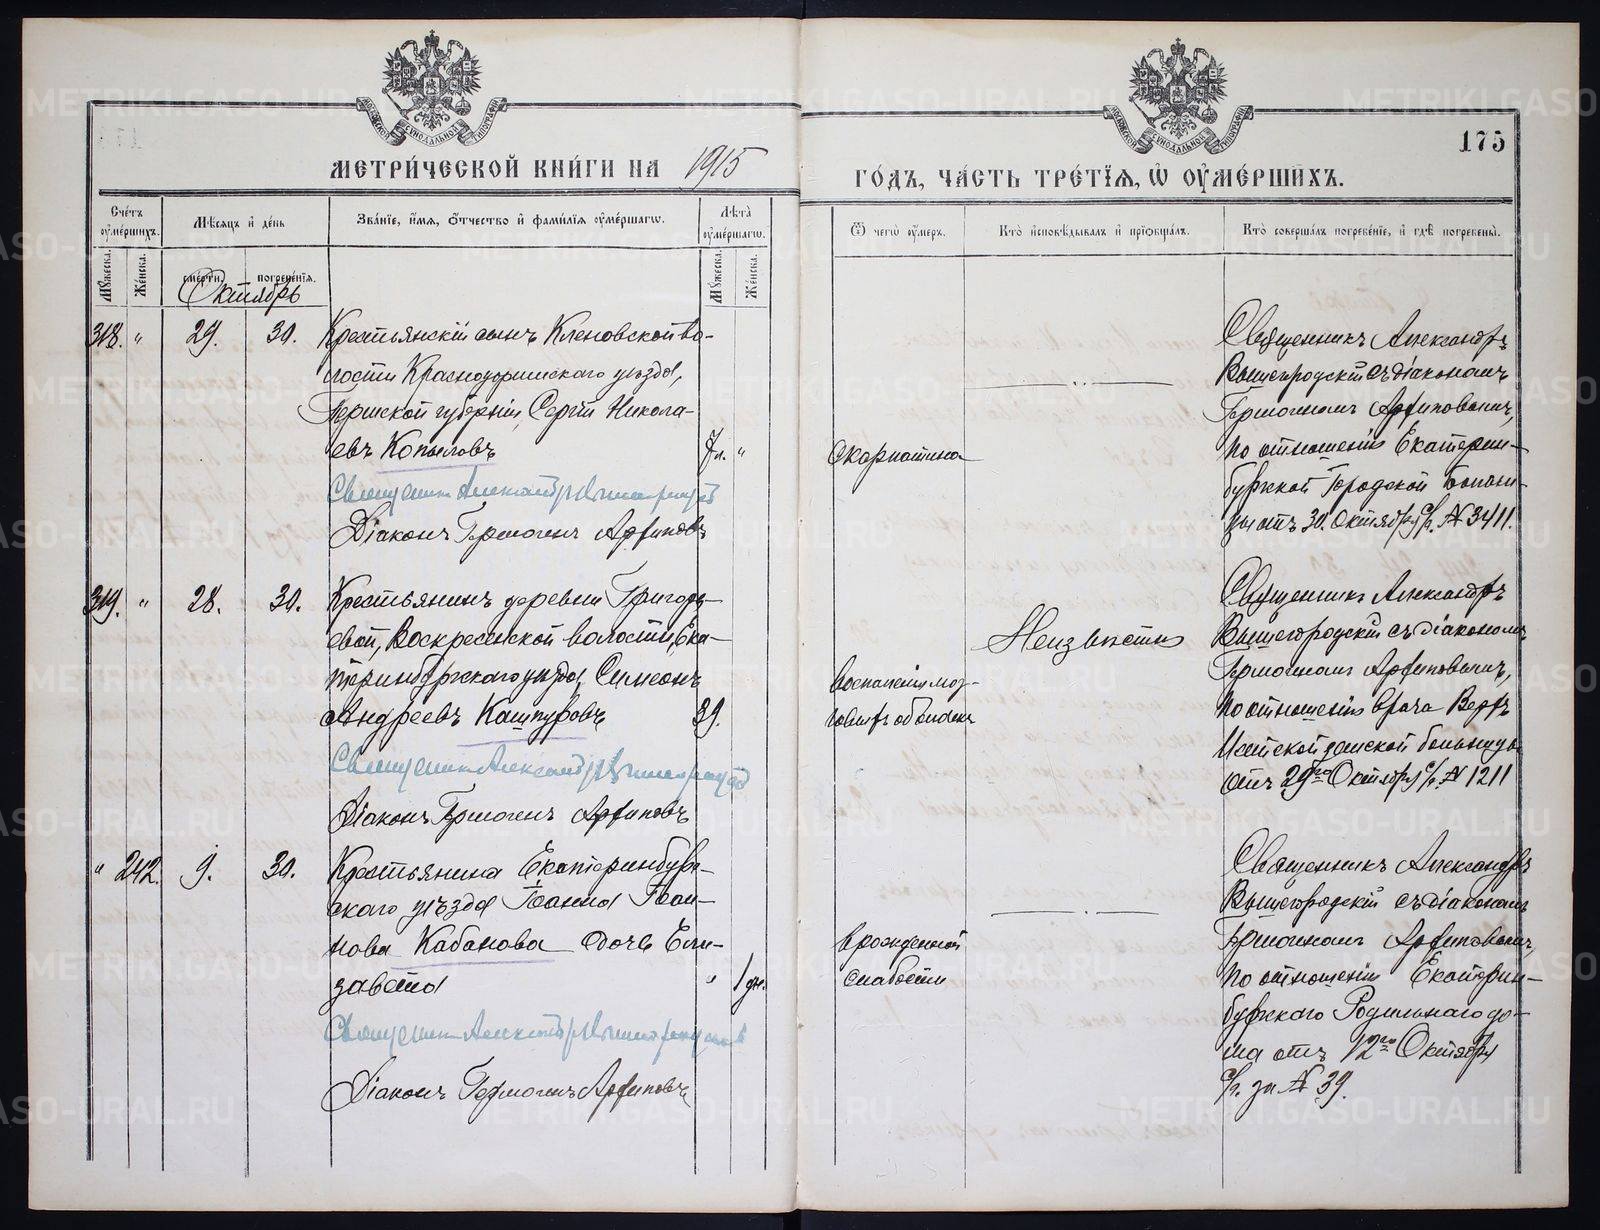 МЕТРИ́ЧЕСКОЙ КНИ́ГИ НА 1915
ГО́ДЪ, ЧА́СТЬ ТРЕ́ТЇѦ, Ѡ ОУМЕ́РШИХЪ.
175
Сче́тъ оумéршихъ.
Мѣ́сяцъ и де́нь
Зва́нїе, и́мя, ѻ́тчество и фами́лїя оуме́ршагѡ.
Лѣ́та оуме́ршагѡ.
Ѿ чегѡ̀ оу́меръ.
Кто̀ и҆сповѣ́дывалъ и҆ прїѡбща́лъ.
Кто̀ соверша́лъ погребе́нїе, и҆ гдѣ̀ погребены̀.
Мꙋ́жеска.
Же́нска.
сме́рти.
погребе́нїя.
Мꙋ́жеска.
Же́нска.
Октябрь
318. " 29. 30.
Крестьянскій сынъ Кленовской во-
лости Красноуфимскаго уѣзда,
Пермской губерніи, Сергій Никола-
евъ Копыловъ
7 л. "
Священникъ Александръ Вышегородскій
Діаконъ Гермогенъ Арфиповъ
скарлатина
Священникъ Александръ
Вышегородскій съ діакономъ
Гермогеномъ
по отношенію Екатерин-
бургской Городской Больни-
цы отъ 30. Октября с/г. № 3411.
319. " 28. 30.
Крестьянинъ деревни Григорь-
евой, Воскресенской волости, Ека-
теринбургскаго уѣзда, Симеонъ
Андреевъ Кашпуровъ
39.
Священникъ Александръ Вышегородскій
Діаконъ Гермогенъ
воспаленія моз-
говыхъ оболочекъ
Неизвѣстно
Священникъ Александръ
Вышегородскій съ діакономъ
Гермогеномъ
по отношенію врача Верхъ
Исетской земской больницы
отъ 29го Октября с/г. № 1211
" 242. 9. 30.
Крестьянина Екатеринбург-
скаго уѣзда Іоанна Іоан-
нова Кабанова дочь Ели-
завета
" 1 дн.
Священникъ Александръ Вышегородскій
Діаконъ Гермогенъ
врожденной
слабости
Священникъ Александръ
Вышегородскій съ діакономъ
Гермогеномъ
по отношенію Екатерин-
бургскаго Родильнаго до-
ма отъ 12го Октября
с/г. за № 39.